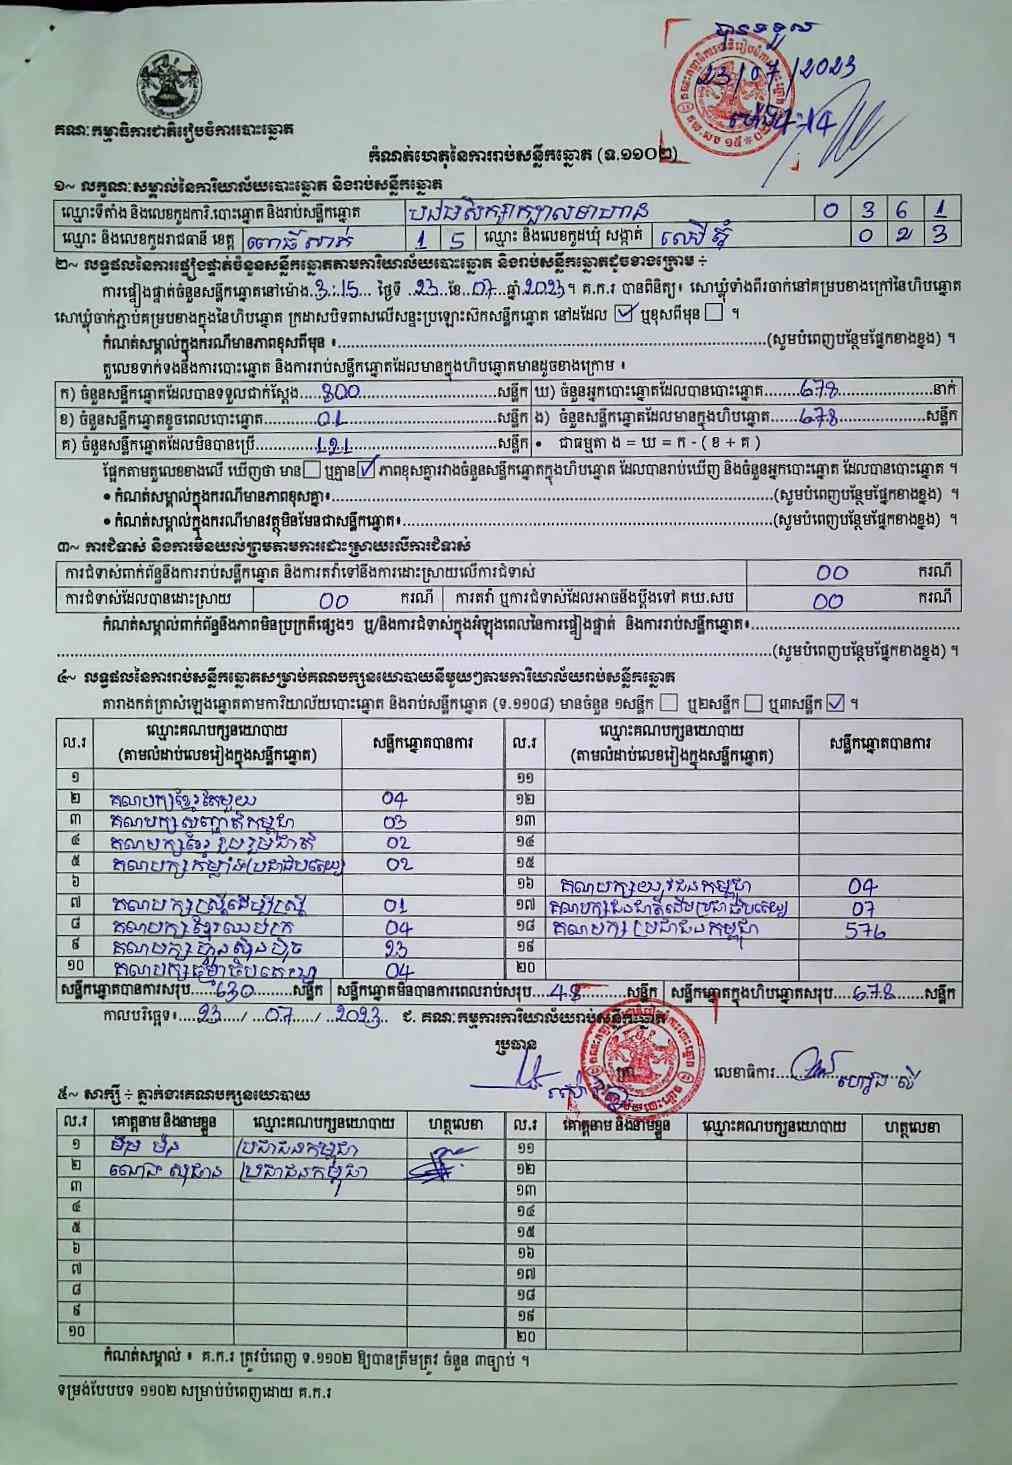 បានទទួល
23/07/2023
ម៉ោង 4:14
គណៈកម្មាធិការជាតិរៀបចំការបោះឆ្នោត
កំណត់ហេតុនៃការរាប់សន្លឹកឆ្នោត (ទ.១១០២)
១~ លក្ខណៈសម្គាល់នៃការិយាល័យបោះឆ្នោត និងរាប់សន្លឹកឆ្នោត
ឈ្មោះទីតាំង និងលេខកូដការិ.បោះឆ្នោត និងរាប់សន្លឹកឆ្នោត 0 3 6 1
ឈ្មោះ និងលេខកូដរាជធានី ខេត្ត ពោធិ៍សាត់ 1 5 ឈ្មោះ និងលេខកូដឃុំ សង្កាត់ ឈើតុំ 0 2 3
២~ លទ្ធផលនៃការផ្ទៀងផ្ទាត់ចំនួនសន្លឹកឆ្នោតតាមការិយាល័យបោះឆ្នោត និងរាប់សន្លឹកឆ្នោតដូចខាងក្រោម ÷
ការផ្ទៀងផ្ទាត់ចំនួនសន្លឹកឆ្នោតនៅម៉ោង..3:15... ថ្ងៃទី ..23..ខែ..07..ឆ្នាំ.2023.។ គ.ក.រ បានពិនិត្យ៖ សោឃ្លុំទាំងពីរចាក់នៅគម្របខាងក្រៅនៃហិបឆ្នោត
សោឃ្លុំចាក់ភ្ជាប់គម្របខាងក្នុងនៃហិបឆ្នោត ក្រដាសបិទពាសលើសន្ទះប្រឡោះស៊កសន្លឹកឆ្នោត នៅដដែល ☑ ឬខុសពីមុន ☐ ។
កំណត់សម្គាល់ក្នុងករណីមានភាពខុសពីមុន ៖..........(សូមបំពេញបន្ថែមផ្នែកខាងខ្នង) ។
តួលេខទាក់ទងនឹងការបោះឆ្នោត និងការរាប់សន្លឹកឆ្នោតដែលមានក្នុងហិបឆ្នោតមានដូចខាងក្រោម ៖
ក) ចំនួនសន្លឹកឆ្នោតដែលបានទទួលជាក់ស្តែង.....800.....សន្លឹក ឃ) ចំនួនអ្នកបោះឆ្នោតដែលបានបោះឆ្នោត.....678.....នាក់
ខ) ចំនួនសន្លឹកឆ្នោតខូចពេលបោះឆ្នោត.....01.....សន្លឹក ង) ចំនួនសន្លឹកឆ្នោតដែលមានក្នុងហិបឆ្នោត.....678.....សន្លឹក
គ) ចំនួនសន្លឹកឆ្នោតដែលមិនបានប្រើ.....121.....សន្លឹក • ជាធម្មតា ង = ឃ = ក - ( ខ + គ )
ផ្អែកតាមតួលេខខាងលើ ឃើញថា មាន ☐ ឬគ្មាន ☑ ភាពខុសគ្នារវាងចំនួនសន្លឹកឆ្នោតក្នុងហិបឆ្នោត ដែលបានរាប់ឃើញ និងចំនួនអ្នកបោះឆ្នោត ដែលបានបោះឆ្នោត ។
• កំណត់សម្គាល់ក្នុងករណីមានភាពខុសគ្នា៖..........(សូមបំពេញបន្ថែមផ្នែកខាងខ្នង) ។
• កំណត់សម្គាល់ក្នុងករណីមានវត្ថុមិនមែនជាសន្លឹកឆ្នោត៖..........(សូមបំពេញបន្ថែមផ្នែកខាងខ្នង) ។
៣~ ការជំទាស់ និងការមិនយល់ព្រមតាមការដោះស្រាយលើការជំទាស់
ការជំទាស់ពាក់ព័ន្ធនឹងការរាប់សន្លឹកឆ្នោត និងការតវ៉ាទៅនឹងការដោះស្រាយលើការជំទាស់ 00 ករណី
ការជំទាស់ដែលបានដោះស្រាយ 00 ករណី ការតវ៉ា ឬការជំទាស់ដែលអាចនឹងប្តឹងទៅ គឃ.សប 00 ករណី
កំណត់សម្គាល់ពាក់ព័ន្ធនឹងភាពមិនប្រក្រតីផ្សេងៗ ឬ/និងការជំទាស់ក្នុងអំឡុងពេលនៃការផ្ទៀងផ្ទាត់ និងការរាប់សន្លឹកឆ្នោត៖..........
..........(សូមបំពេញបន្ថែមផ្នែកខាងខ្នង) ។
៤~ លទ្ធផលនៃការរាប់សន្លឹកឆ្នោតសម្រាប់គណបក្សនយោបាយនីមួយៗតាមការិយាល័យរាប់សន្លឹកឆ្នោត
តារាងកត់ត្រាសំឡេងឆ្នោតតាមការិយាល័យបោះឆ្នោត និងរាប់សន្លឹកឆ្នោត (ទ.១១០៨) មានចំនួន ១សន្លឹក ☐ ឬ២សន្លឹក ☐ ឬ៣សន្លឹក ☑ ។
ល.រ ឈ្មោះគណបក្សនយោបាយ (តាមលំដាប់លេខរៀងក្នុងសន្លឹកឆ្នោត) សន្លឹកឆ្នោតបានការ ល.រ ឈ្មោះគណបក្សនយោបាយ (តាមលំដាប់លេខរៀងក្នុងសន្លឹកឆ្នោត) សន្លឹកឆ្នោតបានការ
១ ១១
២ គណបក្សខ្មែរតែមួយ 04 ១២
៣ គណបក្សសញ្ជាតិកម្ពុជា 03 ១៣
៤ គណបក្សខ្មែររួបរួមជាតិ 02 ១៤
៥ គណបក្សកម្លាំងប្រជាធិបតេយ្យ 02 ១៥
៦ ១៦ គណបក្សយុវជនកម្ពុជា 04
៧ គណបក្សស្ត្រីដើម្បីស្ត្រី 01 ១៧ គណបក្សជនជាតិដើមប្រជាធិបតេយ្យ 07
៨ គណបក្សខ្មែរឈប់ក្រ 04 ១៨ គណបក្សប្រជាជនកម្ពុជា 576
៩ គណបក្សហ្វ៊ុនស៊ិនប៉ិច 23 ១៩
១០ គណបក្សធម្មាធិបតេយ្យ 04 ២០
សន្លឹកឆ្នោតបានការសរុប.....630.....សន្លឹក សន្លឹកឆ្នោតមិនបានការពេលរាប់សរុប....48.....សន្លឹក សន្លឹកឆ្នោតក្នុងហិបឆ្នោតសរុប....678.....សន្លឹក
កាលបរិច្ឆេទ៖....23..../....07..../..2023.. ជ. គណៈកម្មការការិយាល័យរាប់សន្លឹកឆ្នោត
ប្រធាន
លេខាធិការ
៥~ សាក្សី ÷ ភ្នាក់ងារគណបក្សនយោបាយ
ល.រ គោត្តនាម និងនាមខ្លួន ឈ្មោះគណបក្សនយោបាយ ហត្ថលេខា ល.រ គោត្តនាម និងនាមខ្លួន ឈ្មោះគណបក្សនយោបាយ ហត្ថលេខា
១ ប្រជាជនកម្ពុជា ១១
២ ប្រជាជនកម្ពុជា ១២
៣ ១៣
៤ ១៤
៥ ១៥
៦ ១៦
៧ ១៧
៨ ១៨
៩ ១៩
១០ ២០
កំណត់សម្គាល់ ៖ គ.ក.រ ត្រូវបំពេញ ទ.១១០២ ឱ្យបានត្រឹមត្រូវ ចំនួន ៣ច្បាប់ ។
ទម្រង់បែបបទ ១១០២ សម្រាប់បំពេញដោយ គ.ក.រ